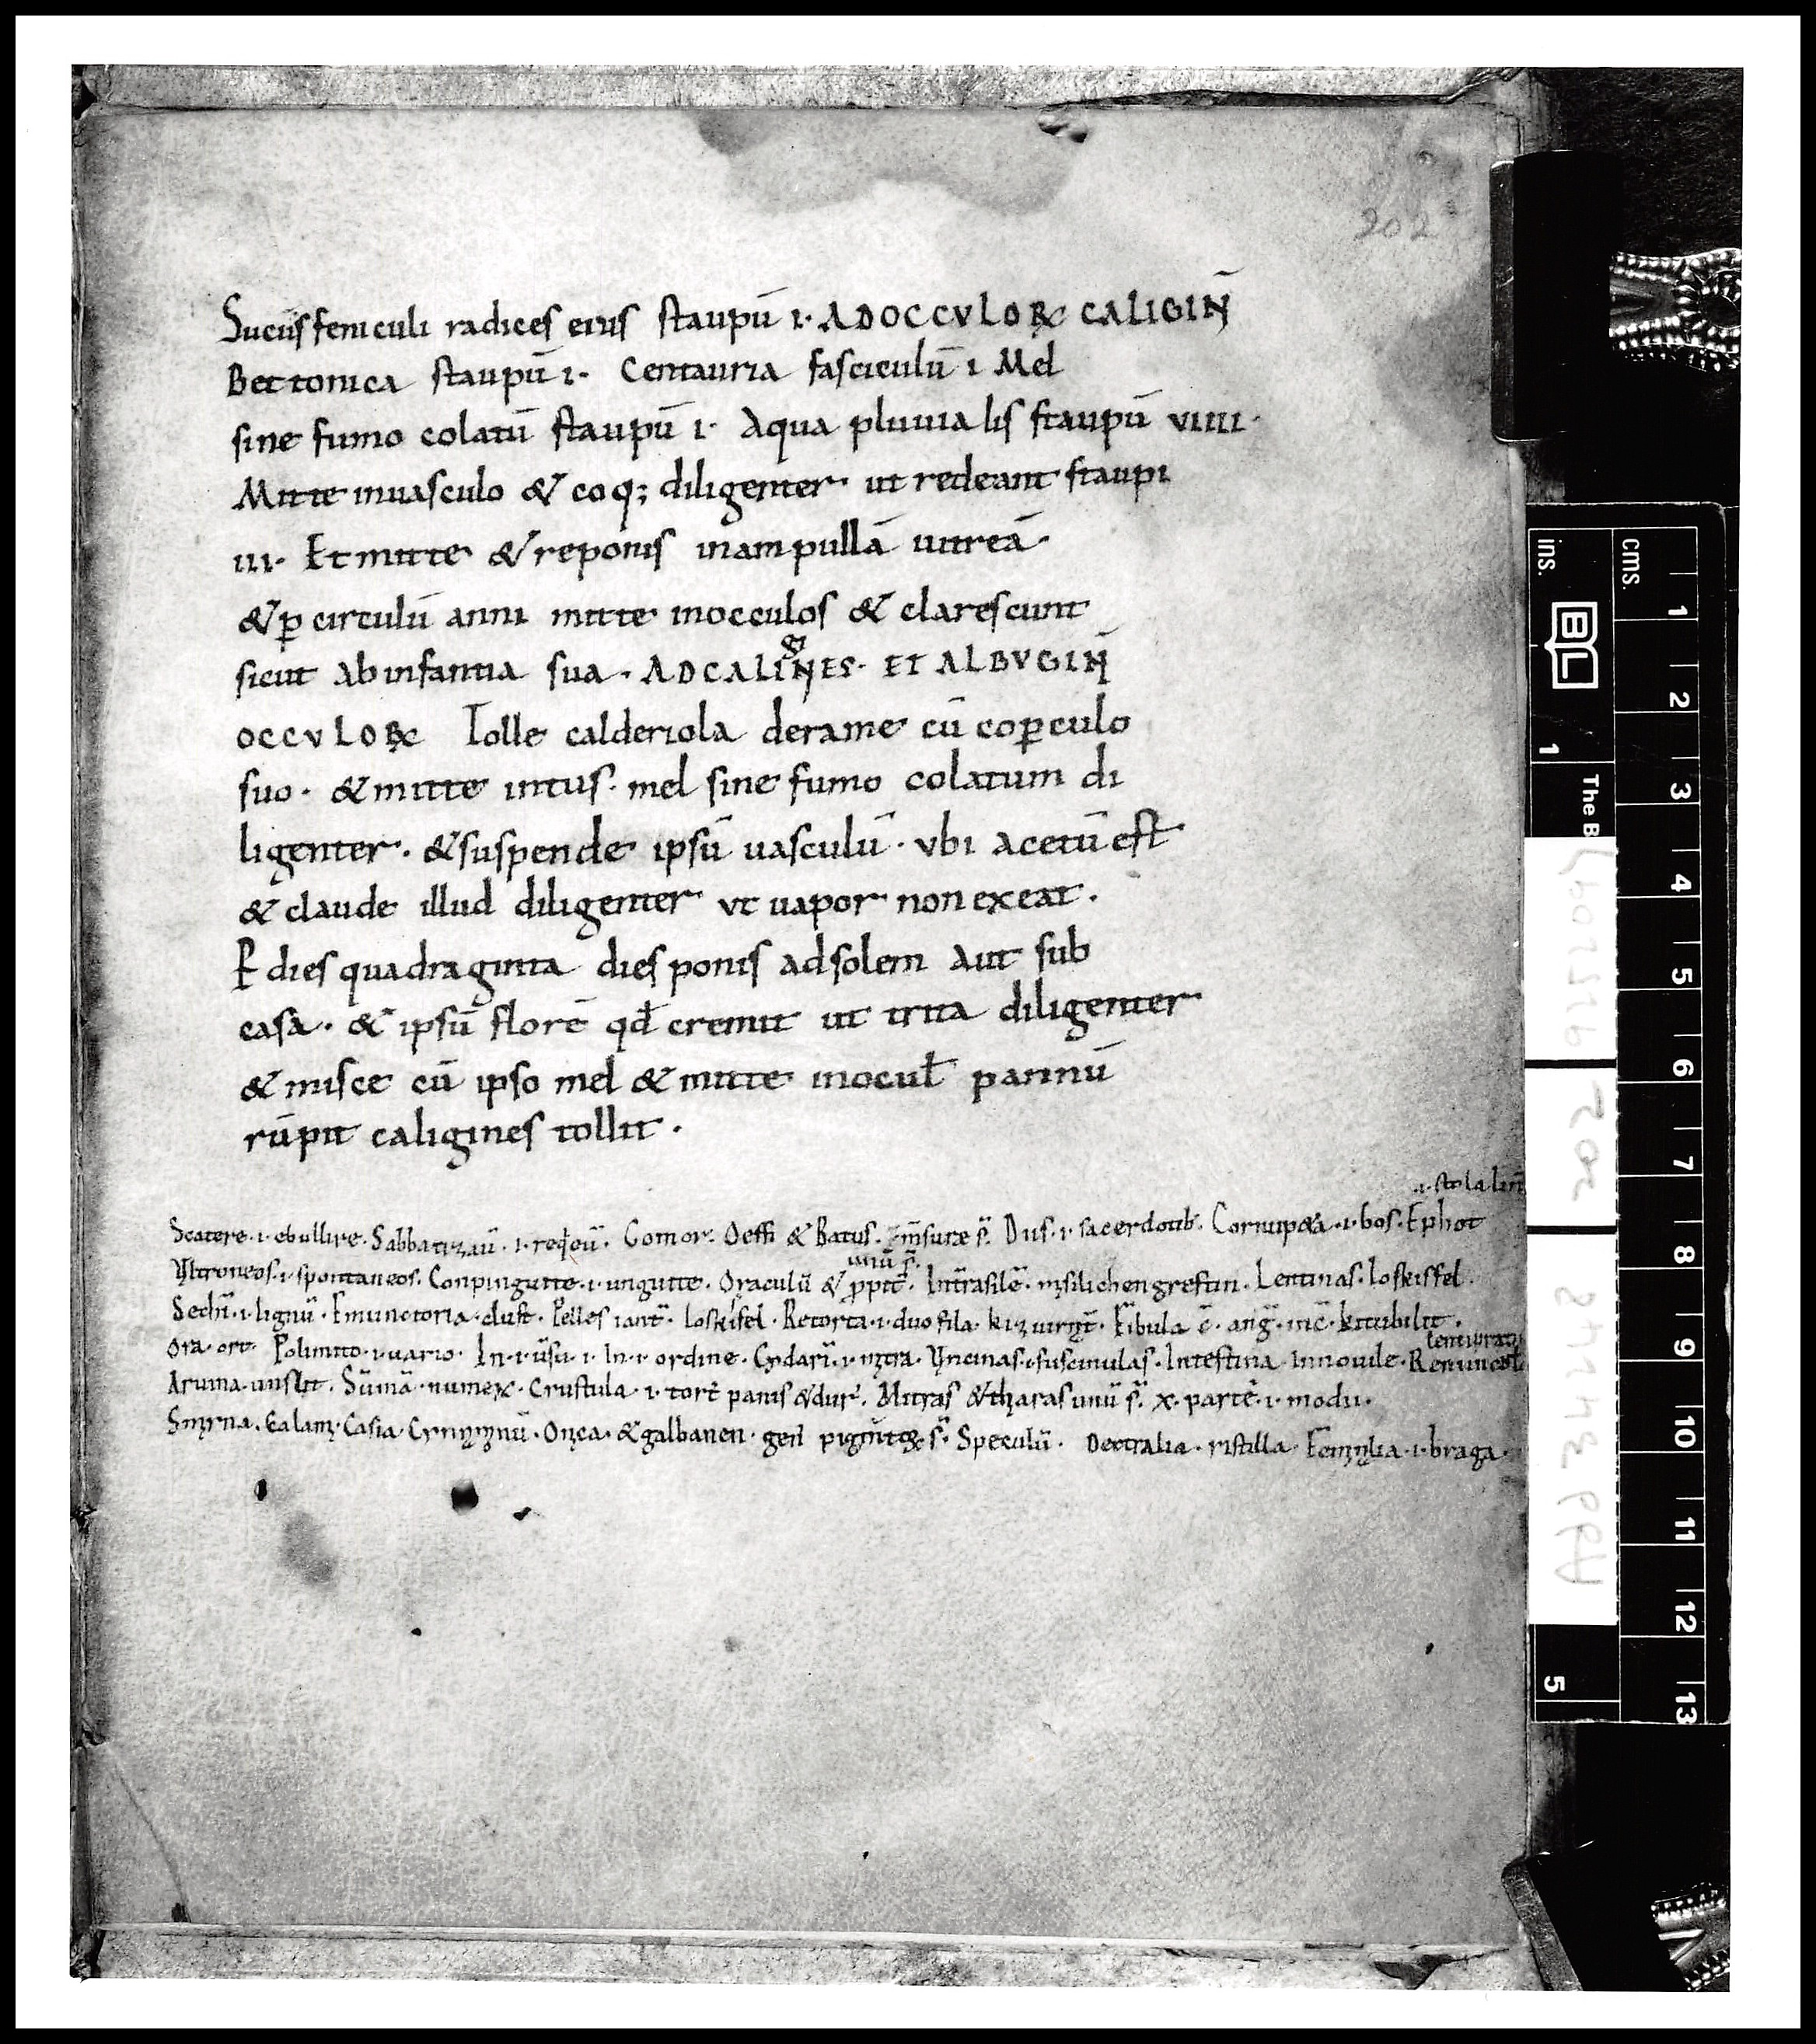 202
Sucus feniculi radices eius staupū ·I· AD OCCVLOꝜ CALIGIN̄
Bettonica staupū ·I· Centauria fasciculū I Mel
sine fumo colatū staupū ·I· Aqua pluuialis staupū VIIII·
Mitte inuasculo & coq; diligenter ut redeant staupi
III· Et mitte & reponis inampullā uitreā·
& ꝑ circulū anni mitte inocculos & clarescunt
sicut ab infantia sua · AD CALIGNES· ET ALBVGIN̄
OCCVLOꝜ Tolle calderiola derame cū coꝑculo
suo · & mitte intus · mel sine fumo colatum di
ligenter · & suspende ipsū uasculū · ubi acetū est
& claude illud diligenter ut uapor non exeat ·
P dies quadraginta dies ponis adsolem aut sub
casa · & ipsū florē qd̄ cremit ut trita diligenter
& misce cū ipso mel & mitte inocul̄ pannū
rūpit caligines tollit ·
·i· stola lin̄
Scatere ·i· ebullire · Sabbatizaū · i · Gomor · Oeffi & Batus · mensuræ s̄ · Dus ·i· sacerdotib · Cornupeta ·i· bos · Ephot
unū s̄·
Vltroneos ·i· spontaneos · Conpingitte ·i· ungitte · Oraculū & ꝓpit̄ · Int̄rasilē · mzsilichengrestin · Lentinas · loskisfel ·
Sethī ·i· lignū · Emunctoria · clust · Pelles iant̄ · Loskisfel · Retorta ·i· duo fila · Fibula ē ·
Ora · ort · Polimito ·i· uario · In ·i· ūsu ·i· In ·i· ordine · Cydarī ·i· mitra · Vncinas ·i· fuscinulas · Intestina · Innouile ·
Aruina · unslit · Sūmā · numex · Crustula ·i· tort̄ panis & dur̄ · Mitras & thiaras unū s̄ · x · partē ·i· modii ·
Smyrna · Calam · Casia · Onyca · & galbanen · gen̄ s̄ · Speculū · Dextralia · ristilla · ·i· braga ·
ins.
cms.
1
2
3
4
5
6
7
8
9
10
11
12
13
BL
1
The B
5
202
ADD 34248